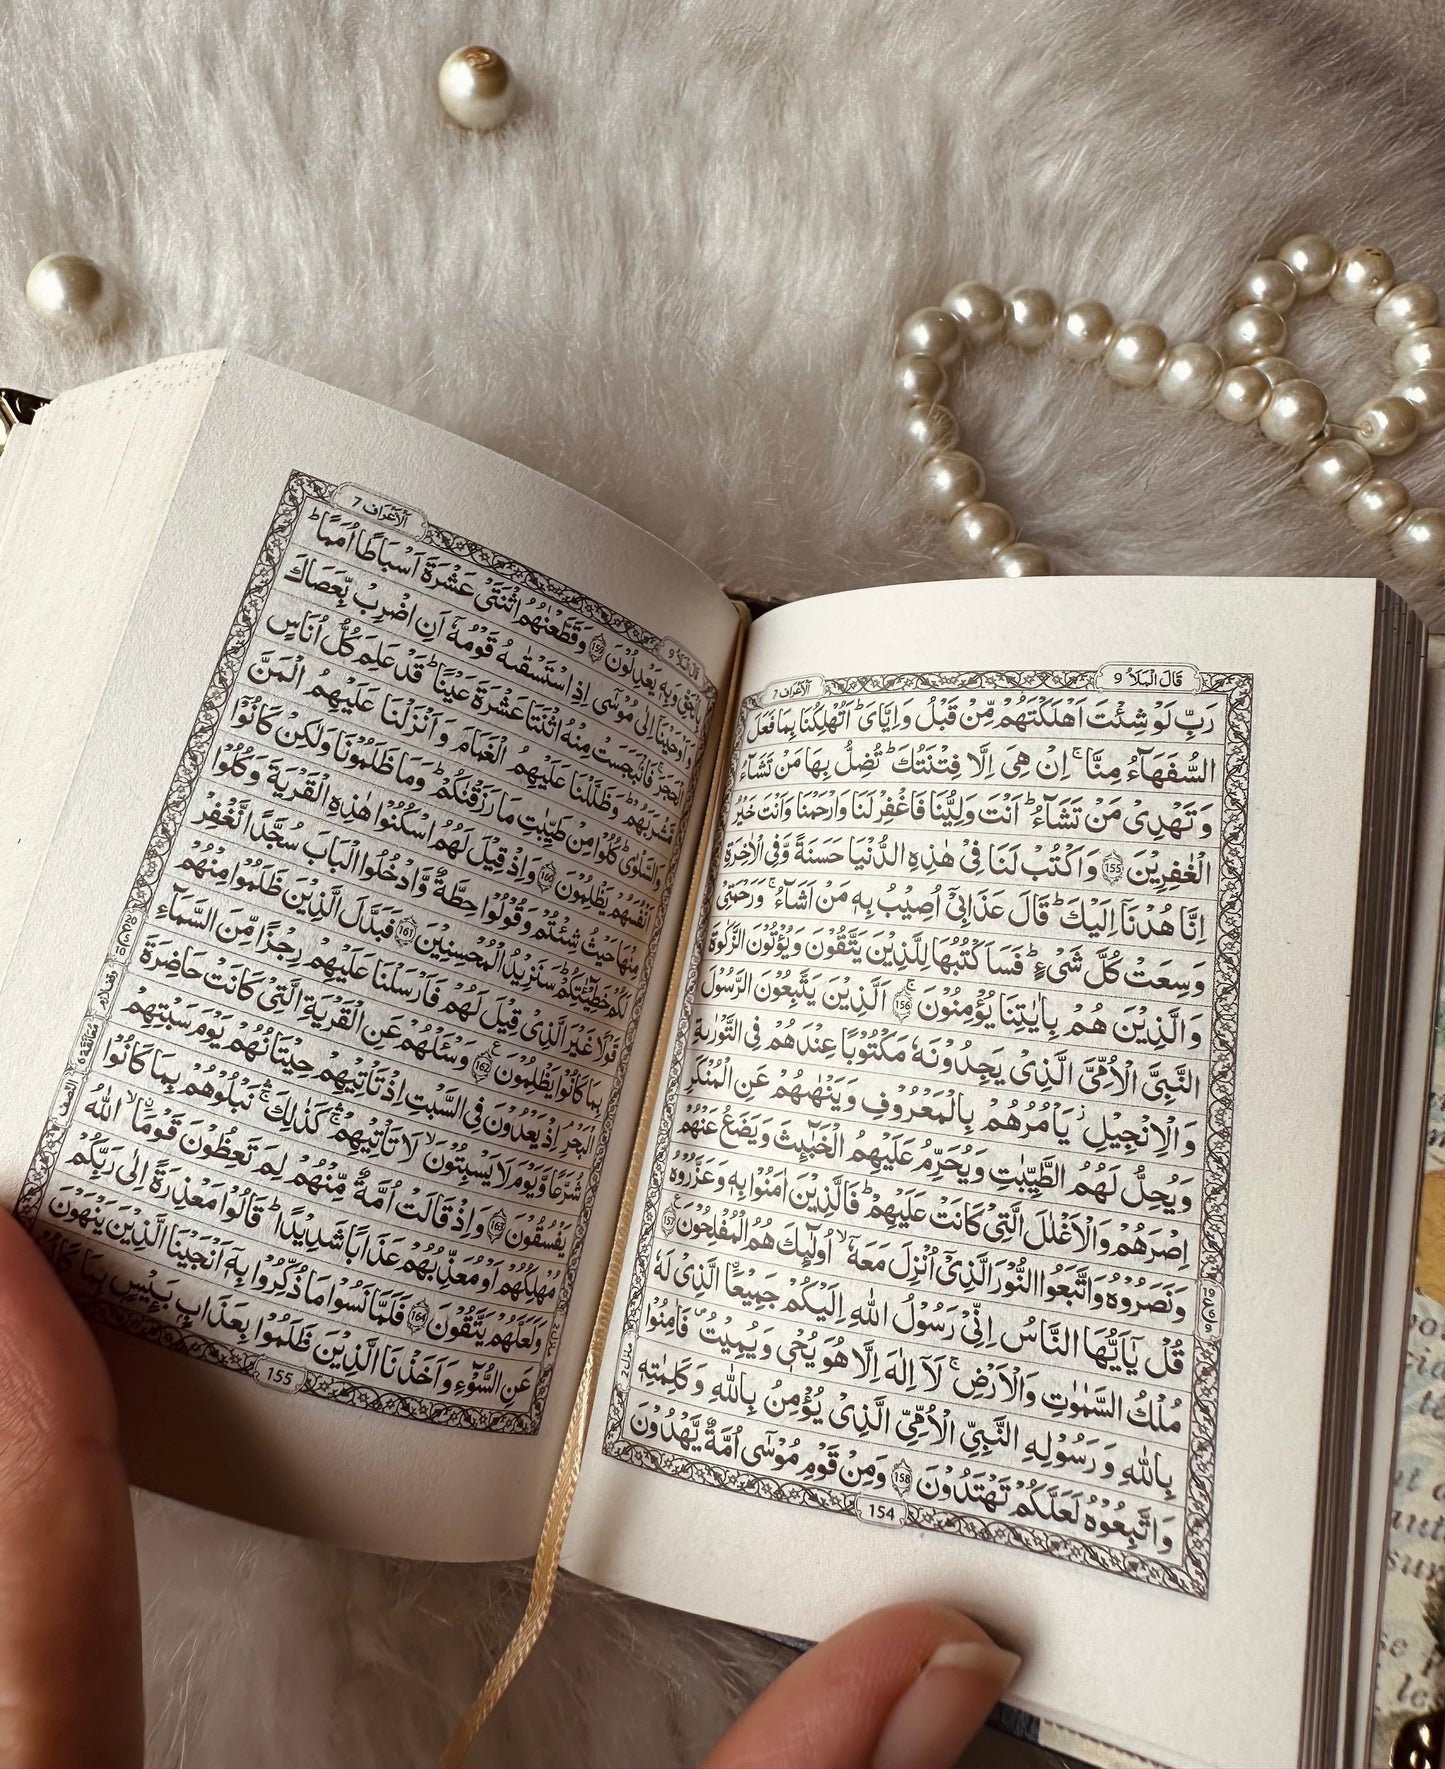 قَالَ الْمَلَاُ 9 اَلْاَعْرَاف 7
رَبِّ لَوْ شِئْتَ اَهْلَكْتَهُمْ مِّنْ قَبْلُ وَاِيَّاىَ ؕ اَتُهْلِكُنَا بِمَا فَعَلَ
السُّفَهَآءُ مِنَّا ۚ اِنْ هِىَ اِلَّا فِتْنَتُكَ ؕ تُضِلُّ بِهَا مَنْ تَشَآءُ
وَتَهْدِىْ مَنْ تَشَآءُ ؕ اَنْتَ وَلِيُّنَا فَاغْفِرْ لَنَا وَارْحَمْنَا وَاَنْتَ خَيْرُ
الْغٰفِرِيْنَ 155 وَاكْتُبْ لَنَا فِىْ هٰذِهِ الدُّنْيَا حَسَنَةً وَّفِى الْاٰخِرَةِ
اِنَّا هُدْنَاۤ اِلَيْكَ ؕ قَالَ عَذَابِىْۤ اُصِيْبُ بِهٖ مَنْ اَشَآءُ ۚ وَرَحْمَتِىْ
وَسِعَتْ كُلَّ شَىْءٍ ؕ فَسَاَكْتُبُهَا لِلَّذِيْنَ يَتَّقُوْنَ وَيُؤْتُوْنَ الزَّكٰوةَ
وَالَّذِيْنَ هُمْ بِاٰيٰتِنَا يُؤْمِنُوْنَ ۚ 156 اَلَّذِيْنَ يَتَّبِعُوْنَ الرَّسُوْلَ
النَّبِىَّ الْاُمِّىَّ الَّذِىْ يَجِدُوْنَهٗ مَكْتُوْبًا عِنْدَهُمْ فِى التَّوْرٰىةِ
وَالْاِنْجِيْلِ ؗ يَاْمُرُهُمْ بِالْمَعْرُوْفِ وَيَنْهٰىهُمْ عَنِ الْمُنْكَرِ
وَيُحِلُّ لَهُمُ الطَّيِّبٰتِ وَيُحَرِّمُ عَلَيْهِمُ الْخَبٰٓئِثَ وَيَضَعُ عَنْهُمْ
اِصْرَهُمْ وَالْاَغْلٰلَ الَّتِىْ كَانَتْ عَلَيْهِمْ ؕ فَالَّذِيْنَ اٰمَنُوْا بِهٖ وَعَزَّرُوْهُ
وَنَصَرُوْهُ وَاتَّبَعُوا النُّوْرَ الَّذِىْۤ اُنْزِلَ مَعَهٗۤ ۙ اُولٰٓئِكَ هُمُ الْمُفْلِحُوْنَ 157
قُلْ يٰۤاَيُّهَا النَّاسُ اِنِّىْ رَسُوْلُ اللّٰهِ اِلَيْكُمْ جَمِيْعَاۨ الَّذِىْ لَهٗ
مُلْكُ السَّمٰوٰتِ وَالْاَرْضِ ۚ لَاۤ اِلٰهَ اِلَّا هُوَ يُحْىٖ وَيُمِيْتُ ۪ فَاٰمِنُوْا
بِاللّٰهِ وَرَسُوْلِهِ النَّبِىِّ الْاُمِّىِّ الَّذِىْ يُؤْمِنُ بِاللّٰهِ وَكَلِمٰتِهٖ
وَاتَّبِعُوْهُ لَعَلَّكُمْ تَهْتَدُوْنَ 158 وَمِنْ قَوْمِ مُوْسٰٓى اُمَّةٌ يَّهْدُوْنَ
منزل 2
154
قَالَ الْمَلَاُ 9 اَلْاَعْرَاف 7
بِالْحَقِّ وَبِهٖ يَعْدِلُوْنَ 159 وَقَطَّعْنٰهُمُ اثْنَتَىْ عَشْرَةَ اَسْبَاطًا اُمَمًا ؕ
وَاَوْحَيْنَاۤ اِلٰى مُوْسٰٓى اِذِ اسْتَسْقٰىهُ قَوْمُهٗۤ اَنِ اضْرِبْ بِّعَصَاكَ
الْحَجَرَ ۚ فَانْۢبَجَسَتْ مِنْهُ اثْنَتَا عَشْرَةَ عَيْنًا ؕ قَدْ عَلِمَ كُلُّ اُنَاسٍ
مَّشْرَبَهُمْ ؕ وَظَلَّلْنَا عَلَيْهِمُ الْغَمَامَ وَاَنْزَلْنَا عَلَيْهِمُ الْمَنَّ
وَالسَّلْوٰى ؕ كُلُوْا مِنْ طَيِّبٰتِ مَا رَزَقْنٰكُمْ ؕ وَمَا ظَلَمُوْنَا وَلٰكِنْ كَانُوْۤا
اَنْفُسَهُمْ يَظْلِمُوْنَ 160 وَاِذْ قِيْلَ لَهُمُ اسْكُنُوْا هٰذِهِ الْقَرْيَةَ وَكُلُوْا
مِنْهَا حَيْثُ شِئْتُمْ وَقُوْلُوْا حِطَّةٌ وَّادْخُلُوا الْبَابَ سُجَّدًا نَّغْفِرْ
لَكُمْ خَطِيْٓئٰتِكُمْ ؕ سَنَزِيْدُ الْمُحْسِنِيْنَ 161 فَبَدَّلَ الَّذِيْنَ ظَلَمُوْا مِنْهُمْ
قَوْلًا غَيْرَ الَّذِىْ قِيْلَ لَهُمْ فَاَرْسَلْنَا عَلَيْهِمْ رِجْزًا مِّنَ السَّمَآءِ
بِمَا كَانُوْا يَظْلِمُوْنَ 162 وَسْئَلْهُمْ عَنِ الْقَرْيَةِ الَّتِىْ كَانَتْ حَاضِرَةَ
الْبَحْرِ ۘ اِذْ يَعْدُوْنَ فِى السَّبْتِ اِذْ تَاْتِيْهِمْ حِيْتَانُهُمْ يَوْمَ سَبْتِهِمْ
شُرَّعًا وَّيَوْمَ لَا يَسْبِتُوْنَ ۙ لَا تَاْتِيْهِمْ ۛۚ كَذٰلِكَ ۛۚ نَبْلُوْهُمْ بِمَا كَانُوْا
يَفْسُقُوْنَ 163 وَاِذْ قَالَتْ اُمَّةٌ مِّنْهُمْ لِمَ تَعِظُوْنَ قَوْمَا ۙ اۨللّٰهُ
مُهْلِكُهُمْ اَوْ مُعَذِّبُهُمْ عَذَابًا شَدِيْدًا ؕ قَالُوْا مَعْذِرَةً اِلٰى رَبِّكُمْ
وَلَعَلَّهُمْ يَتَّقُوْنَ 164 فَلَمَّا نَسُوْا مَا ذُكِّرُوْا بِهٖۤ اَنْجَيْنَا الَّذِيْنَ يَنْهَوْنَ
عَنِ السُّوْٓءِ وَاَخَذْنَا الَّذِيْنَ ظَلَمُوْا بِعَذَابٍۭ بَئِيْسٍۭ بِمَا كَانُوْا
155